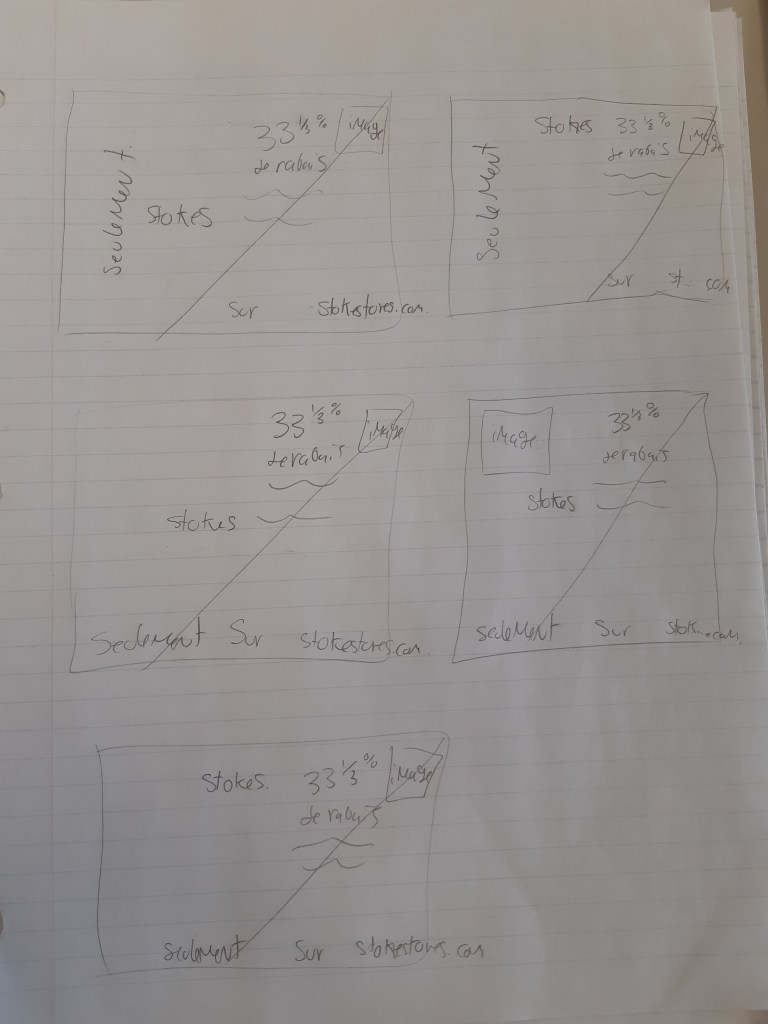 33 1/3 %
image
de rabais
Seulement
Stokes
Sur stokestores.com
Stokes 33 1/3 %
image
de rabais
Seulement
Sur st... com
33 1/3 %
image
de rabais
Stokes
Seulement Sur stokestores.com
image
33 1/3 %
de rabais
Stokes
Seulement Sur stok....com
Stokes. 33 1/3 %
image
de rabais
Seulement Sur stokestores.com